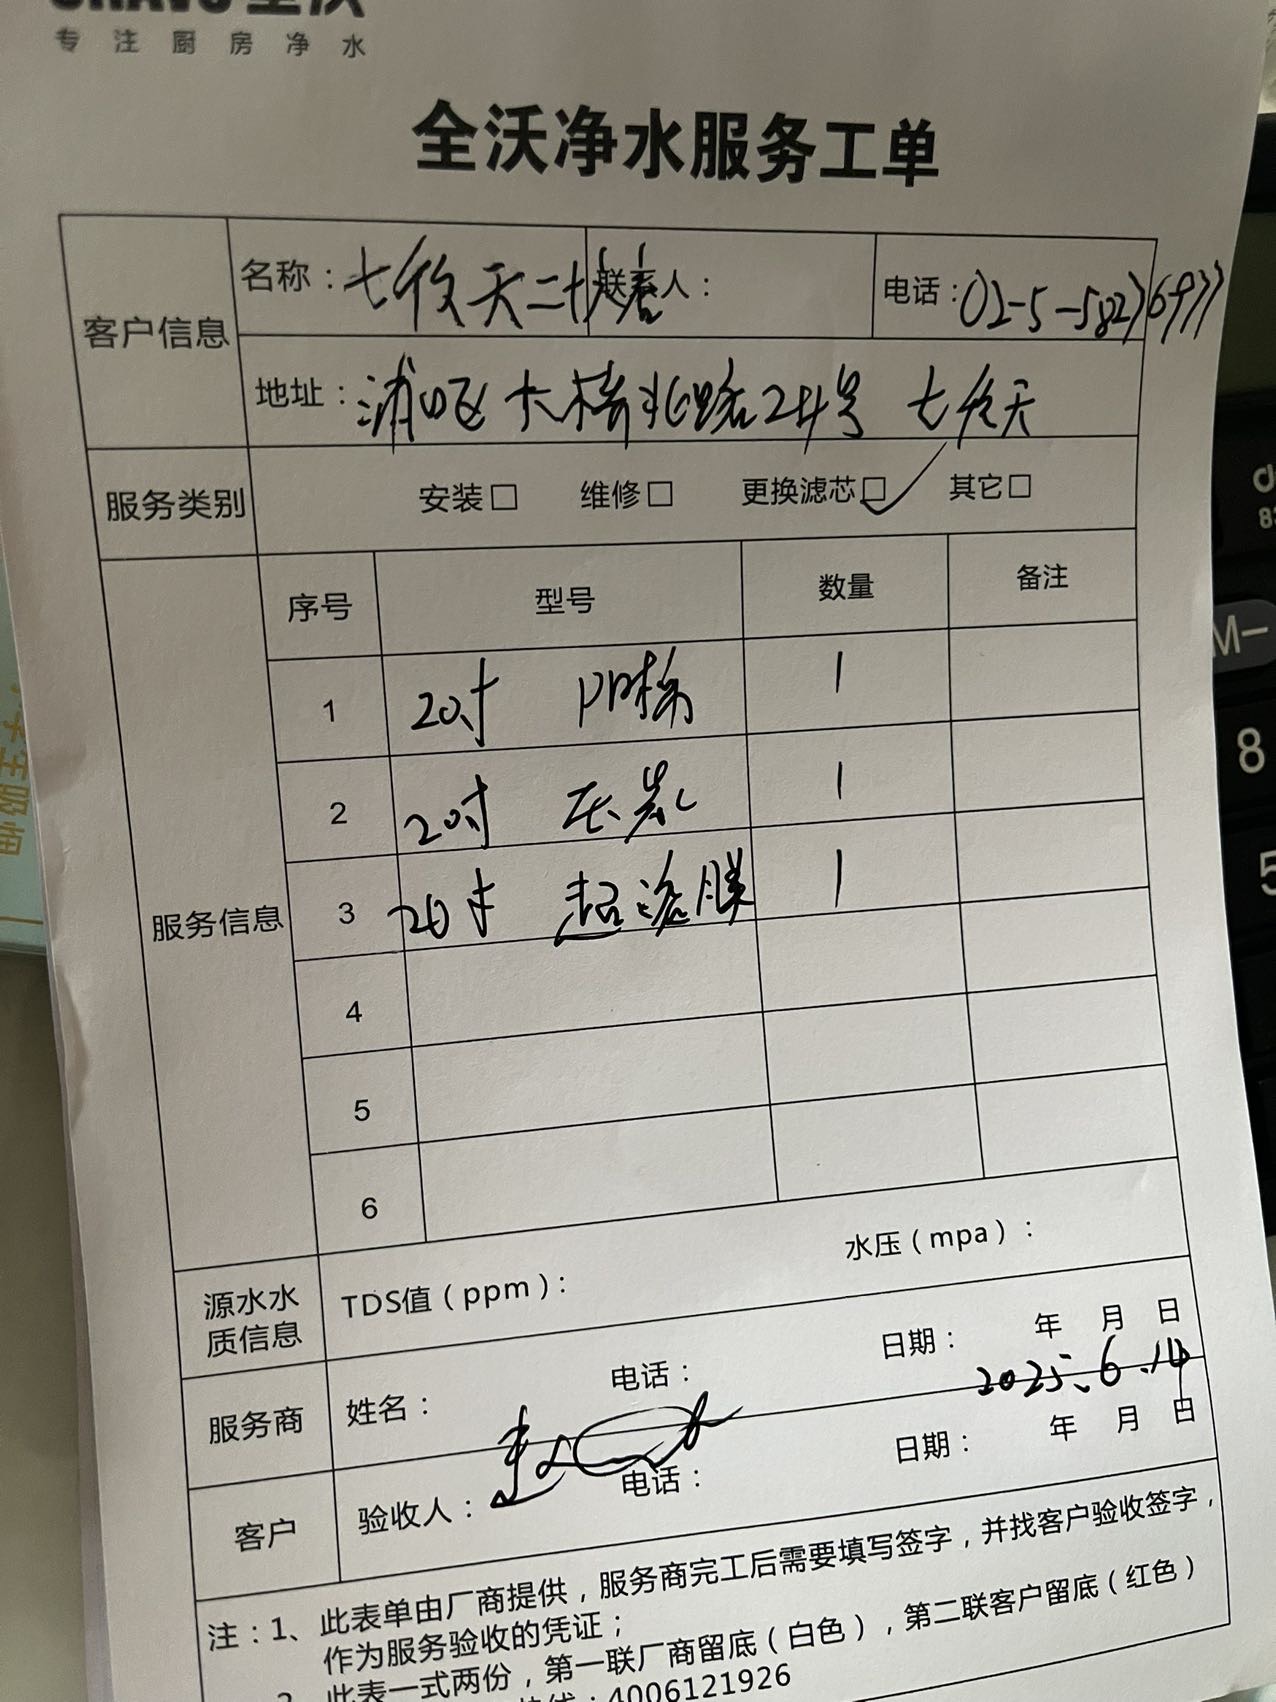 专注厨房净水
全沃净水服务工单
客户信息
名称：七欣天二十 联系人： 电话：025-58276977
地址：浦口区大桥北路24号 七欣天
服务类别 安装□ 维修□ 更换滤芯□✓ 其它□
服务信息
序号 型号 数量 备注
1 20寸 PP棉 1
2 20寸 灰炭 1
3 20寸 超滤膜 1
4
5
6
源水水质信息 TDS值（ppm）： 水压（mpa）：
服务商 姓名： 电话： 日期： 年 月 日
2025.6.14
客户 验收人： 电话： 日期： 年 月 日
注：1、此表单由厂商提供，服务商完工后需要填写签字，并找客户验收签字，
作为服务验收的凭证；
2、此表一式两份，第一联厂商留底（白色），第二联客户留底（红色）
热线：4006121926